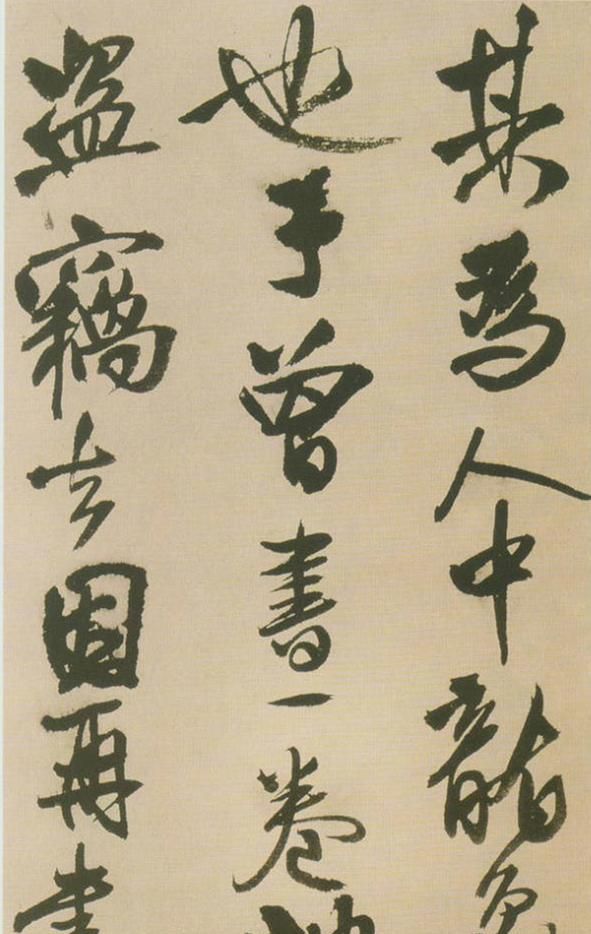 其為人中龍
也予曾書一卷
盜竊去因再書